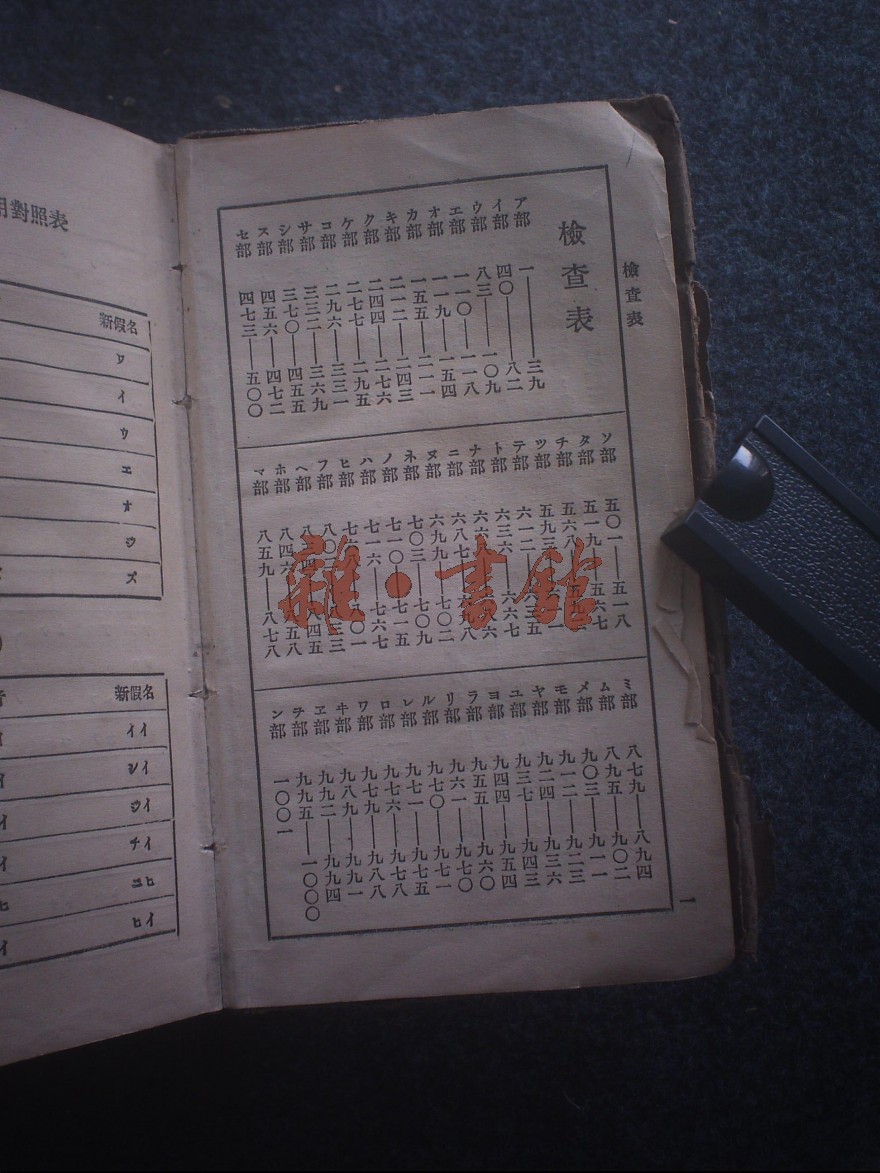 檢査表
檢査表
ア部 一——三九
イ部 四〇——八二
ウ部 八三——一〇九
エ部 一一〇——一一八
オ部 一一九——一五四
カ部 一五五——二一一
キ部 二一二——二四三
ク部 二四四——二七六
ケ部 二七七——二九五
コ部 二九六——三三一
サ部 三三二——三六九
シ部 三七〇——四五五
ス部 四五六——四七二
セ部 四七三——五〇〇
ソ部 五〇一——五一八
タ部 五一九——五六七
チ部 五六八
ツ部 五九三
テ部 六一二
ト部 六三六——六六七
ナ部 六六八——六八六
ニ部 六八七——六九八
ヌ部 六九九——七〇二
ネ部 七〇三——七〇九
ノ部 七一〇——七一五
ハ部 七一六——七六七
ヒ部 七六八——八〇一
フ部 八〇二——八三三
ヘ部 八三四——八四五
ホ部 八四六——八五八
マ部 八五九——八七八
ミ部 八七九——八九四
ム部 八九五——九〇二
メ部 九〇三——九一一
モ部 九一二——九二三
ヤ部 九二四——九三六
ユ部 九三七——九四三
ヨ部 九四四——九五四
ラ部 九五五——九六〇
リ部 九六一——九七〇
ル部 九七〇——九七一
レ部 九七一——九七五
ロ部 九七六——九七八
ワ部 九七九——九八八
ヰ部 九八九——九九一
ヱ部 九九二——九九四
ヲ部 九九五——一〇〇〇
ン部 一〇〇一
一
用對照表
新假名
ワ
イ
ウ
エ
オ
ジ
ズ
新假名
イイ
シイ
ジイ
チイ
ヒイ
雜·書館